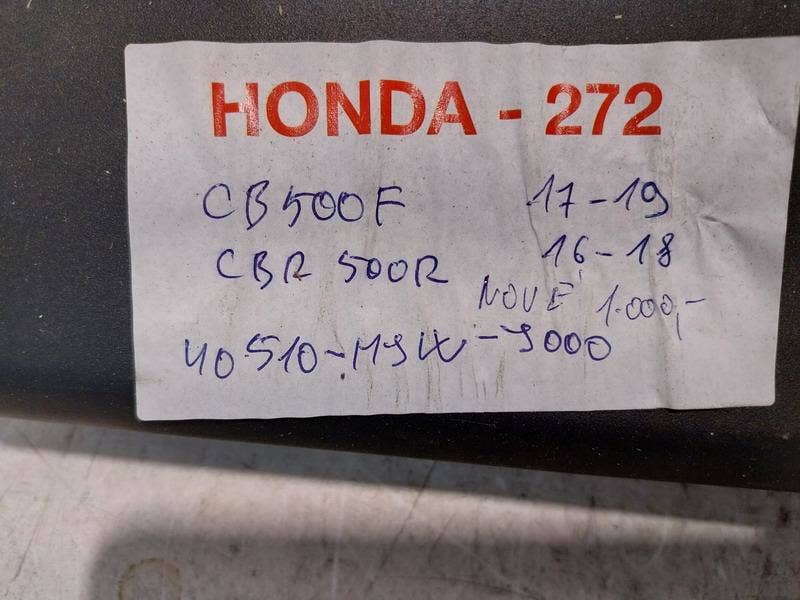 HONDA - 272
CB500F 17-19
CBR 500R 16-18
NOVÉ 1.000,-
40510-MJW-J000